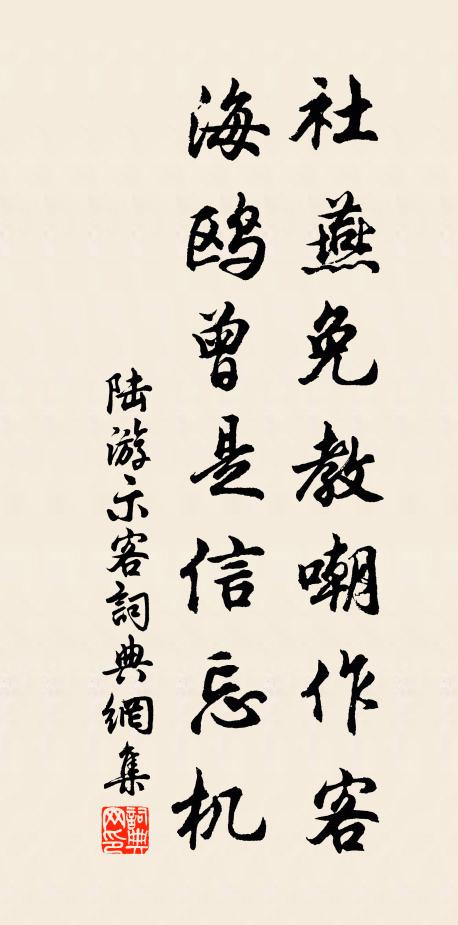 社燕免教嘲作客
海鸥曾是信忘机
陆游示客詞典網集
詞典网印